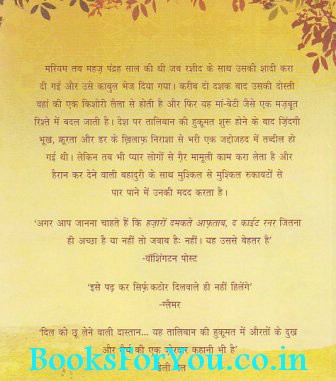 मरियम तब महज़ पंद्रह साल की थी जब रशीद के साथ उसकी शादी करा
दी गई और उसे काबुल भेज दिया गया। करीब दो दशक बाद उसकी दोस्ती
वहां की एक किशोरी लैला से होती है और फिर यह मां-बेटी जैसे एक मज़बूत
रिश्ते में बदल जाती है। देश पर तालिबान की हुकूमत शुरू होने के बाद ज़िंदगी
भूख, क्रूरता और डर के ख़िलाफ़ निराशा से भरी एक जद्दोजहद में तब्दील हो
गई थी। लेकिन तब भी प्यार लोगों से ग़ैर मामूली काम करा लेता है और
हैरान कर देने वाली बहादुरी के साथ मुश्किल से मुश्किल रुकावटों से
पार पाने में उनकी मदद करता है।
'अगर आप जानना चाहते हैं कि हज़ारों दमकते आफ़ताब, द काईट रनर जितना
ही अच्छा है या नहीं तो जवाब हैः नहीं। यह उससे बेहतर है'
-वॉशिंगटन पोस्ट
'इसे पढ़ कर सिर्फ़ कठोर दिलवाले ही नहीं हिलेंगे'
-ग्लैमर
'दिल को छू लेने वाली दास्तान... यह तालिबान की हुकूमत में औरतों के दुख
और धैर्य की एक ज़ोरदार कहानी भी है'
BooksForYou.co.in
डेली मेल